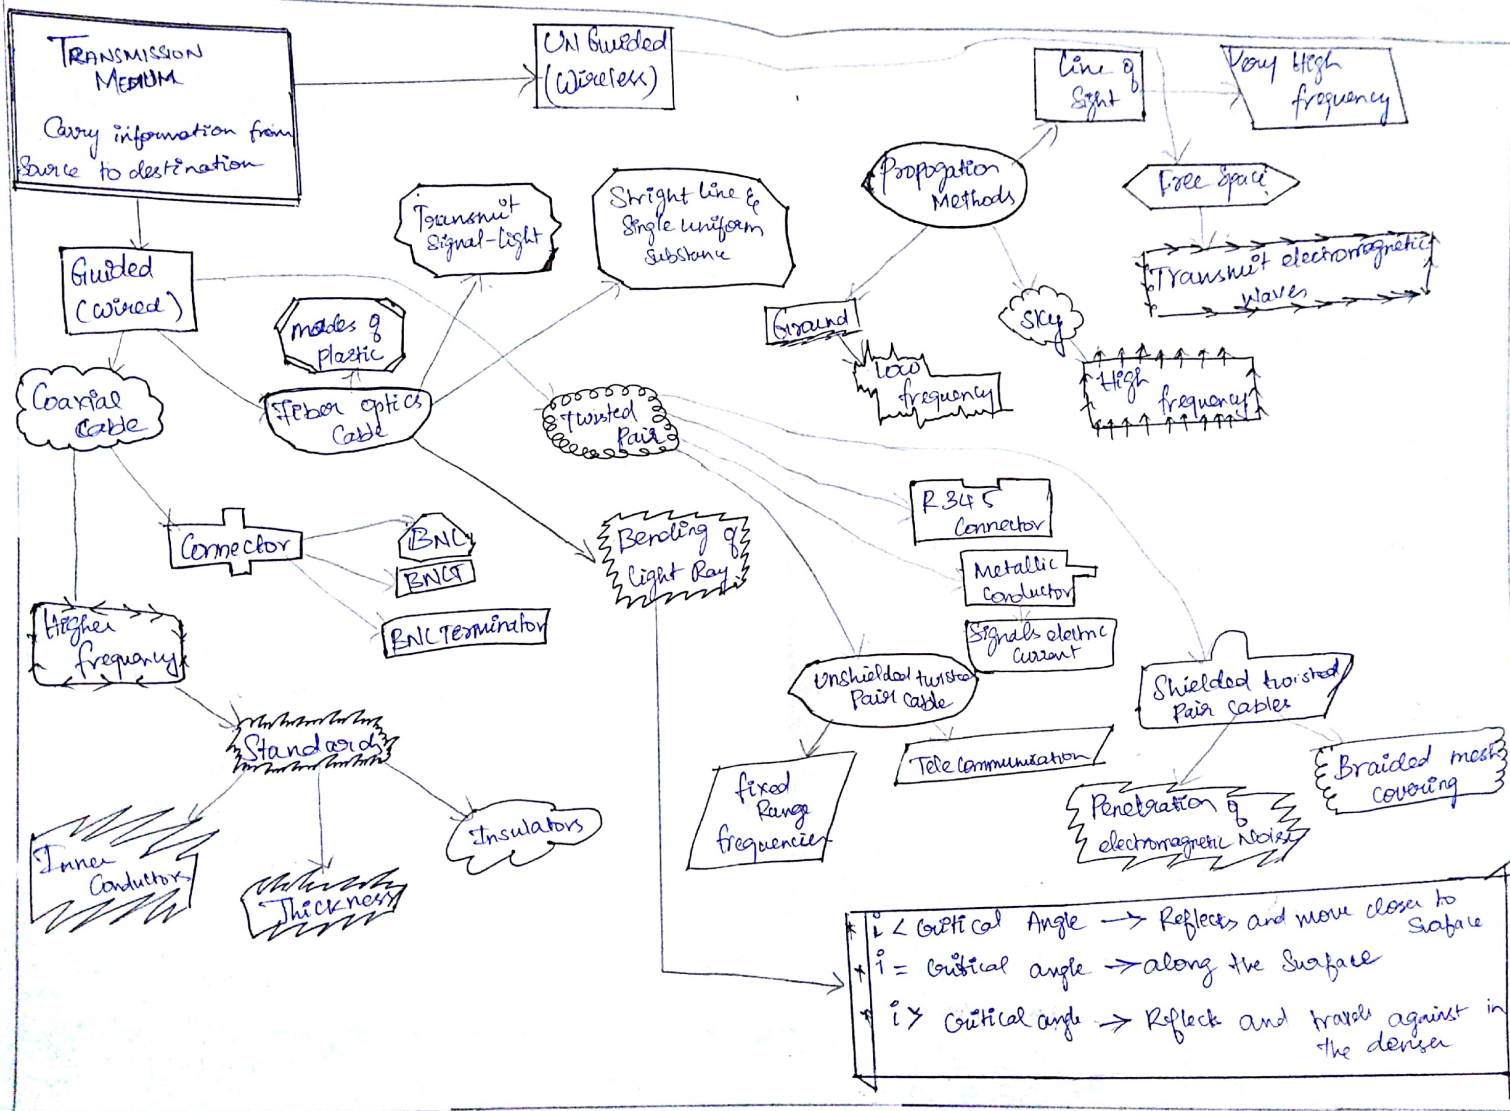 TRANSMISSION
MEDIUM
Carry information from
Source to destination
UN Guided
(Wireless)
Line of
Sight
Very High
frequency
Propogation
Methods
Free Space
Transmit electromagnetic
waves
Ground
Low
frequency
Sky
High
frequency
Guided
(Wired)
Transmit
Signal-light
Stright line &
Single uniform
Substance
Modes of
plastic
Coaxial
Cable
Fiber optics
Cable
Twisted
Pair
Connector
BNC
BNCT
BNC Terminator
Bending of
light Ray
R345
Connector
Metallic
Conductor
Signals electric
Current
Higher
frequency
Unshielded twisted
Pair Cable
Shielded twisted
Pair Cables
Standards
Inner
Conductors
Thickness
Insulators
fixed
Range
frequencies
Telecommunication
Penetration of
electromagnetic Noise
Braided mesh
covering
* i < Critical Angle → Reflects and move closer to
Surface
* i = Critical angle → along the Surface
* i > Critical angle → Reflect and travels against in
the denser